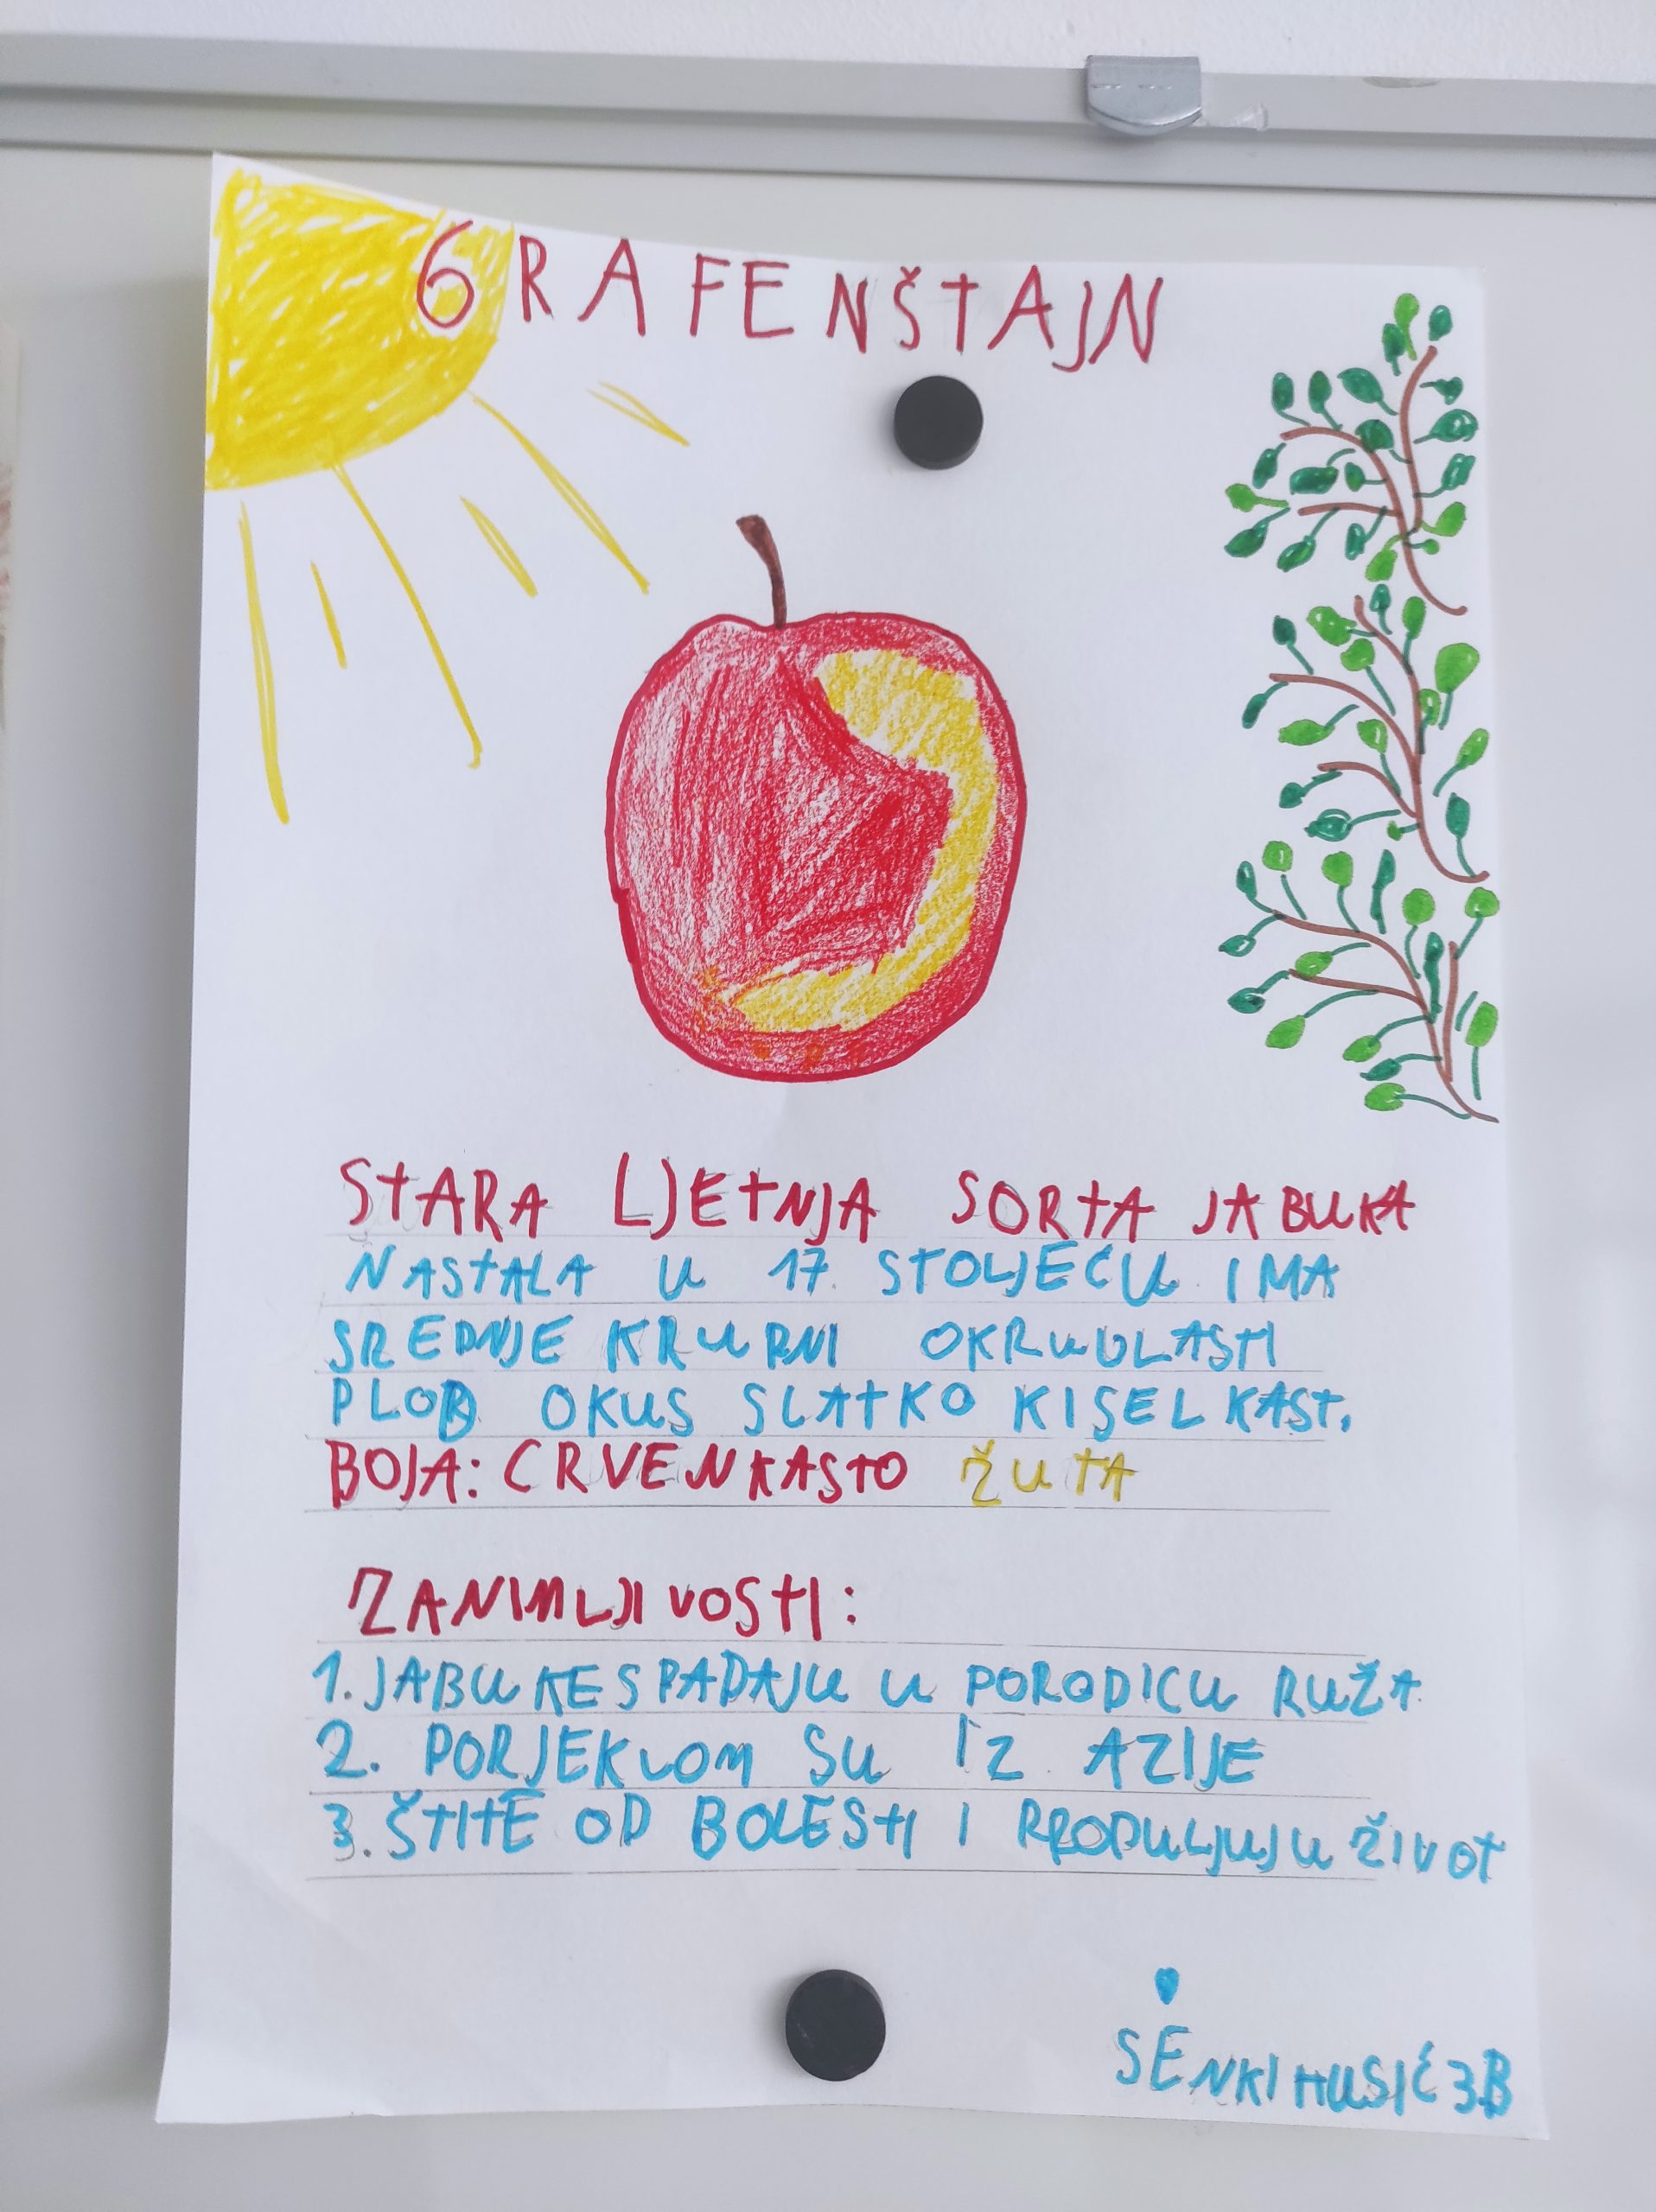 GRAFENŠTAJN
STARA LJETNJA SORTA JABUKA
NASTALA U 17. STOLJEĆU IMA
SREDNJE KRUPNI OKRUGLASTI
PLOD OKUS SLATKO KISELKAST.
BOJA: CRVENKASTO ŽUTA
ZANIMLJIVOSTI:
1. JABUKE SPADAJU U PORODICU RUŽA
2. PORJEKLOM SU IZ AZIJE
3. ŠTITE OD BOLESTI I PRODULJUJU ŽIVOT
SENKI HUSIĆ 3B